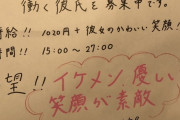 働く彼氏を募集中です。
時給!! 1020円+彼女のかわいい笑顔!
時間!! 15:00～27:00
望!!
イケメン優しい
笑顔が素敵